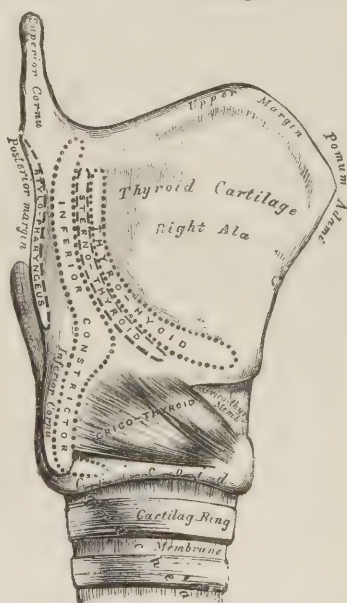 Superior Cornu
Upper Margin
Pomum Adami
Posterior margin
Thyroid Cartilage
Right Ala
STYLO-PHARYNGEUS
INFERIOR CONSTRICTOR
STERNO-THYROID
THYRO-HYOID
Inferior Cornu
Crico-thy.
Memb
CRICO-THYROID
Cricoid
Cartilag. Ring
Membrane